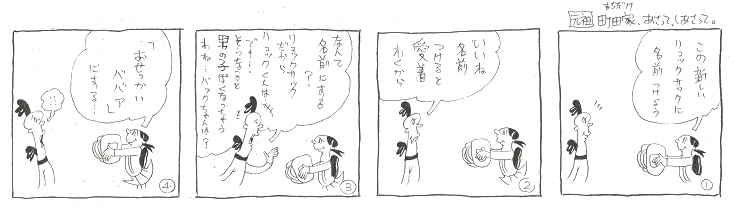 元祖 町田家、あさって、しあさって。
まちだけ
①
この新しい
リュックサックに
名前つけよう
②
いいね
名前
つけると
愛着
わくから
③
なんて
名前にする
?、
リュックサック
だから
リュックくんは
です…
そうなると
男の子ぽくなっちゃう
わね…バックちゃんは〜?
④
「おせっかい
ババア」
にする…
…